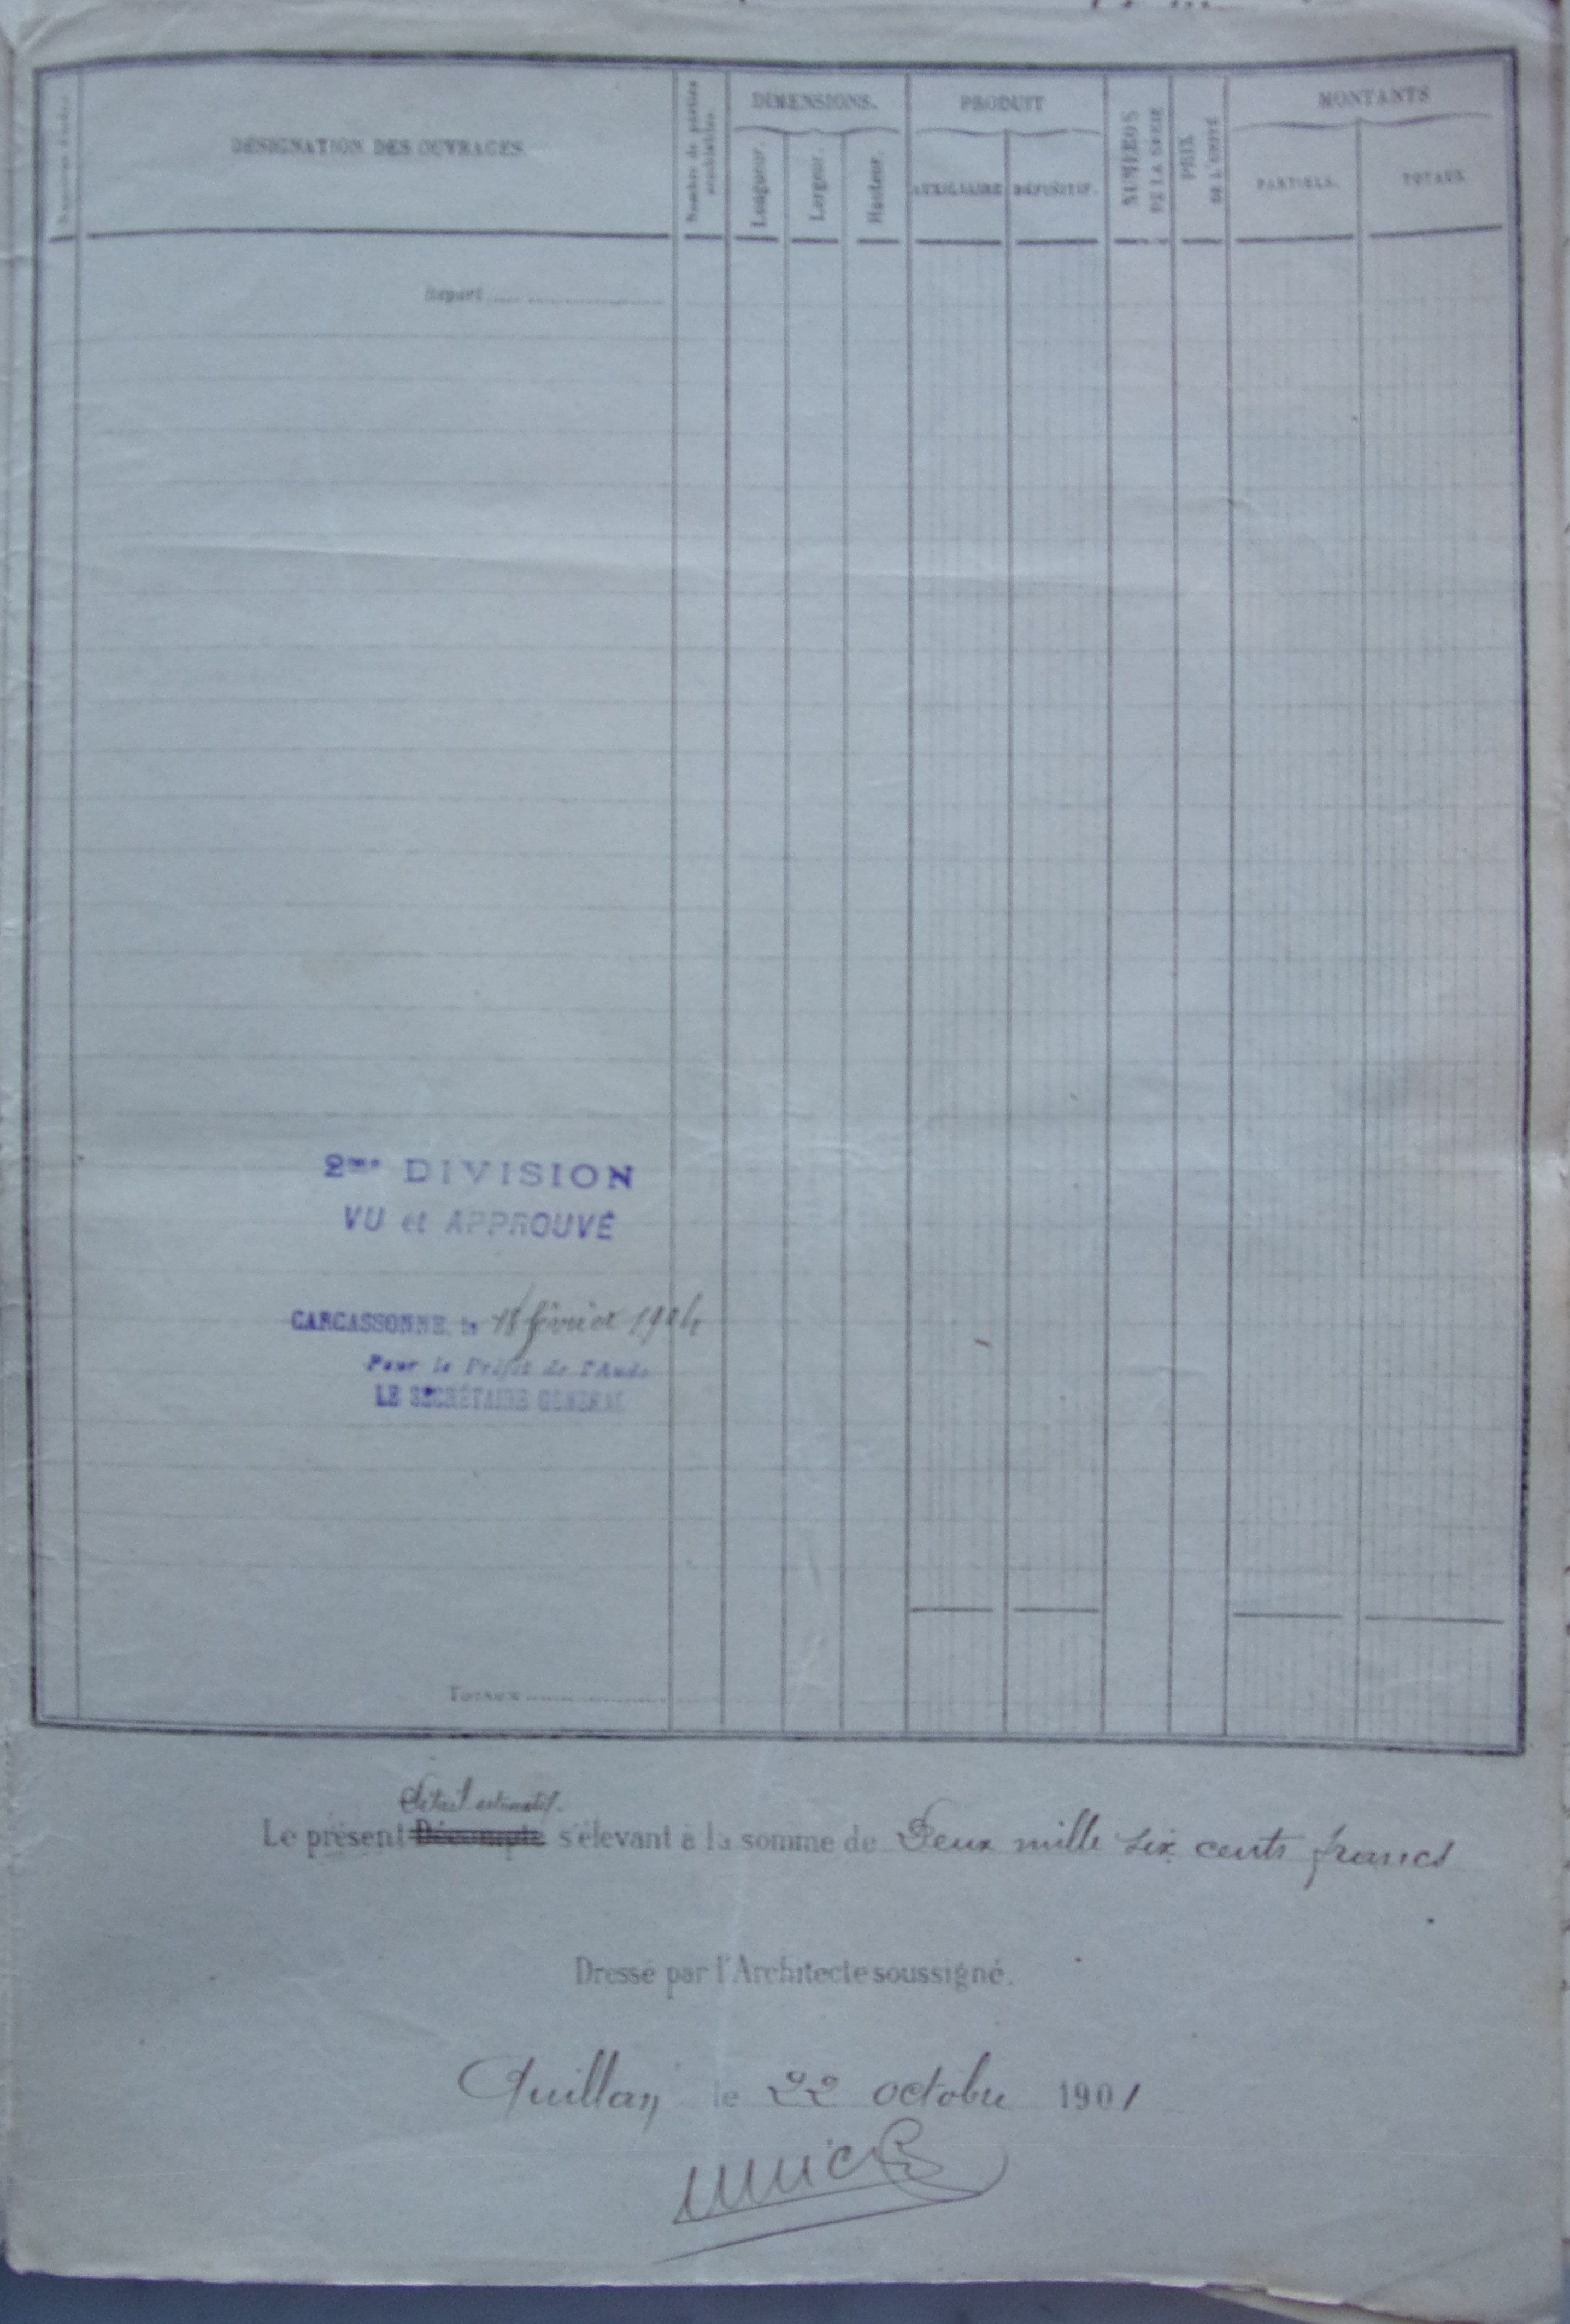 DÉSIGNATION DES OUVRAGES.
Nombre de parties semblables.
DIMENSIONS.
Longueur.
Largeur.
Hauteur.
PRODUIT
AUXILIAIRE
DÉFINITIF.
NUMÉROS DE LA SÉRIE
PRIX DE L'UNITÉ
MONTANTS
PARTIELS.
TOTAUX
Report
2me DIVISION
VU et APPROUVÉ
CARCASSONNE, le 18 février 1904
Pour le Préfet de l'Aude
LE SECRÉTAIRE GÉNÉRAL
TOTAUX
Détail estimatif.
Le présent Décompte s'élevant à la somme de Deux mille six cents francs
Dressé par l'Architecte soussigné.
Quillan le 22 octobre 1901